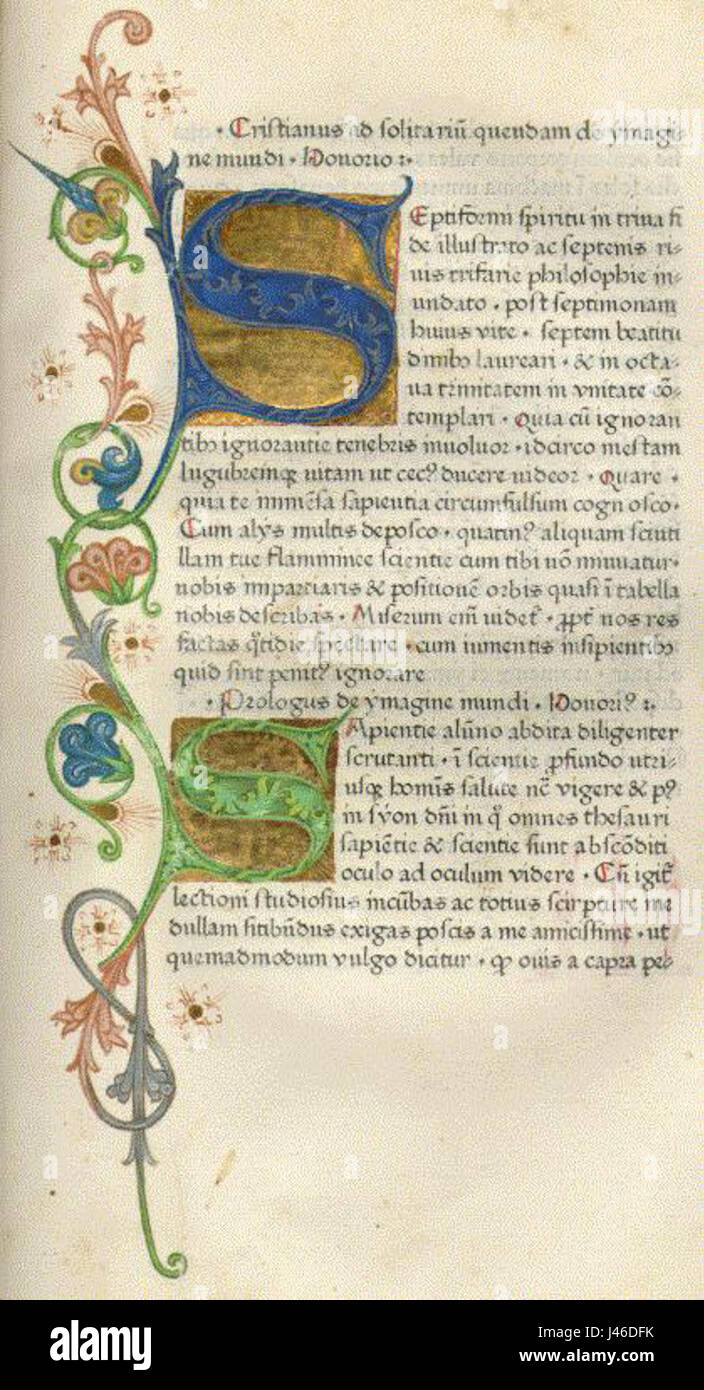 · Cristianus ad solitariū quendam de ymagi-
ne mundi · Honorio :·
SEptiformi spiritu in trina fi
de illustrato ac septenis ri-
uis trifarie philosophie in-
undato · post septimonam
huius vite · septem beatitu
dinibꝫ laureari · & in octa-
ua trinitatem in vnitate cō-
templari · Quia cū ignoran
tibꝫ ignorantie tenebris inuoluor · idcirco mestam
lugubremqꝫ uitam ut cecꝰ ducere uideor · Quare ·
quia te inmēsa sapientia circumfulsum cognosco ·
Cum alys multis deposco · quatinꝰ aliquam sciuti
llam tue flammince scientie cum tibi nō minuatur ·
nobis imparciaris & positionē orbis quasi ī tabella
nobis describas · Miserum em̄ uidet᷑ · ꝓpt᷑ nos res
factas q̄tidie spectare · cum iumentis insipientibꝫ
quid sint penitꝰ ignorare
· Prologus de ymagine mundi · Honoriꝰ :·
SApientie alūno abdita diligenter
scrutanti · ī scientie ꝓfundo utri-
usqꝫ hom̄s salute nc̄ vigere & pꝰ
in syon dn̄i in q° omnes thesauri
sapiētie & scientie sunt abscōditi
oculo ad oculum videre · Cū igit᷑
lectioni studiosius incūbas ac totius scirpture me
dullam sitibūdus exigas poscis a me amicissime · ut
quemadmodum vulgo dicitur · qꝫ ouis a capra pe-
alamy
Image ID: J46DFK
www.alamy.com